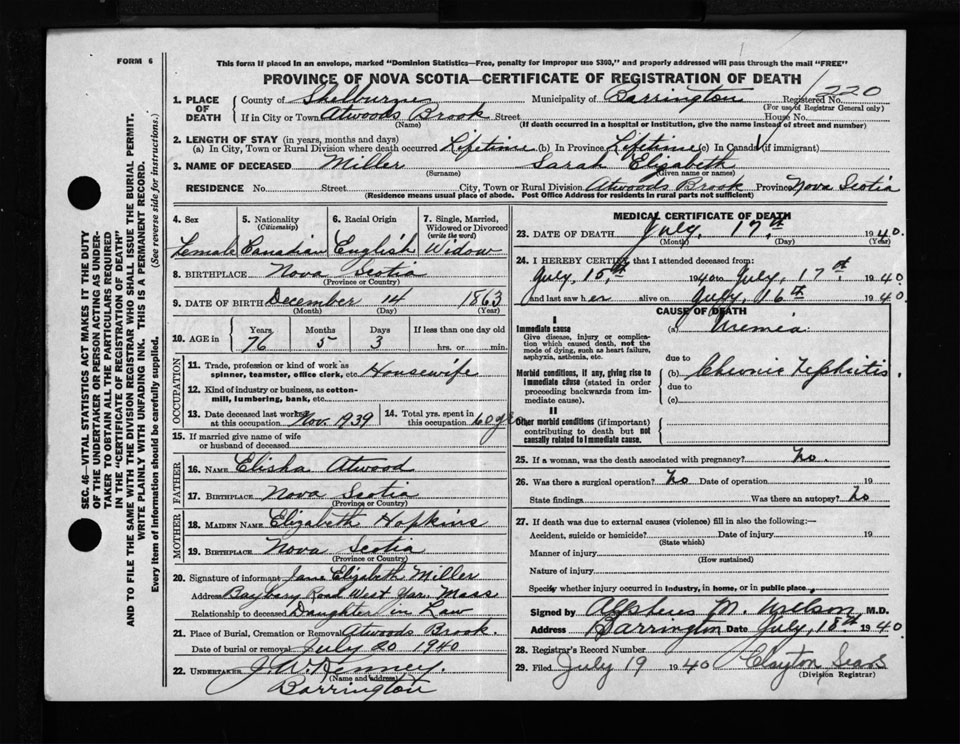 FORM 6
This form if placed in an envelope, marked "Dominion Statistics—Free, penalty for improper use $300," and properly addressed will pass through the mail "FREE"
PROVINCE OF NOVA SCOTIA—CERTIFICATE OF REGISTRATION OF DEATH
220
1. PLACE OF DEATH County of Shelburne Municipality of Barrington Registered No.
(For use of Registrar General only)
If in City or Town Atwoods Brook Street House No.
(Name) (If death occurred in a hospital or institution, give the name instead of street and number)
2. LENGTH OF STAY (in years, months and days)
(a) In City, Town or Rural Division where death occurred Lifetime (b) In Province Lifetime (c) In Canada (if immigrant)
3. NAME OF DECEASED Miller Sarah Elizabeth
(Surname) (Given name or names)
RESIDENCE No. Street City, Town or Rural Division Atwoods Brook Province Nova Scotia
(Residence means usual place of abode. Post Office Address for residents in rural parts not sufficient)
4. Sex 5. Nationality (Citizenship) 6. Racial Origin 7. Single, Married, Widowed or Divorced (write the word)
Female Canadian English Widow
8. BIRTHPLACE Nova Scotia
(Province or Country)
9. DATE OF BIRTH December 14 1863
(Month) (Day) (Year)
10. AGE in Years Months Days If less than one day old
76 5 3 hrs. or min.
OCCUPATION
11. Trade, profession or kind of work as spinner, teamster, office clerk, etc. Housewife
12. Kind of industry or business, as cotton-mill, lumbering, bank, etc.
13. Date deceased last worked at this occupation Nov. 1939 14. Total yrs. spent in this occupation 60 yrs
15. If married give name of wife or husband of deceased
FATHER
16. NAME Elisha Atwood
17. BIRTHPLACE Nova Scotia
(Province or Country)
MOTHER
18. MAIDEN NAME Elizabeth Hopkins
19. BIRTHPLACE Nova Scotia
(Province or Country)
20. Signature of informant Jane Elizabeth Miller
Address Baybery Road West Yar. Mass
Relationship to deceased Daughter in Law
21. Place of Burial, Cremation or Removal Atwoods Brook.
Date of burial or removal July 20 1940
22. UNDERTAKER J. A. Kenney.
(Name and address)
Barrington
MEDICAL CERTIFICATE OF DEATH
23. DATE OF DEATH July, 17th 1940.
(Month) (Day) (Year)
24. I HEREBY CERTIFY that I attended deceased from:
July, 15th 1940 to July, 17th 1940
and last saw her alive on July, 16th 1940.
CAUSE OF DEATH
I
Immediate cause (a) Uremia
Give disease, injury or complication which caused death, not the mode of dying, such as heart failure, asphyxia, asthenia, etc.
due to
Morbid conditions, if any, giving rise to immediate cause (stated in order proceeding backwards from immediate cause). (b) Chronic Nephritis.
due to
(c)
II
Other morbid conditions (if important) contributing to death but not causally related to immediate cause.
25. If a woman, was the death associated with pregnancy? No.
26. Was there a surgical operation? No Date of operation 19
State findings Was there an autopsy? No
27. If death was due to external causes (violence) fill in also the following:—
Accident, suicide or homicide? Date of injury 19
(State which)
Manner of injury
(How sustained)
Nature of injury
Specify whether injury occurred in industry, in home, or in public place
Signed by M. Wilson M.D.
Address Barrington Date July, 18th 1940.
28. Registrar's Record Number
29. Filed July 19 1940 Clayton Sears
(Division Registrar)
SEC. 46—VITAL STATISTICS ACT MAKES IT THE DUTY
OF THE UNDERTAKER OR PERSON ACTING AS UNDER-
TAKER TO OBTAIN ALL THE PARTICULARS REQUIRED
IN THE "CERTIFICATE OF REGISTRATION OF DEATH"
AND TO FILE THE SAME WITH THE DIVISION REGISTRAR WHO SHALL ISSUE THE BURIAL PERMIT.
WRITE PLAINLY WITH UNFADING INK. THIS IS A PERMANENT RECORD.
Every item of Information should be carefully supplied. (See reverse side for instructions.)